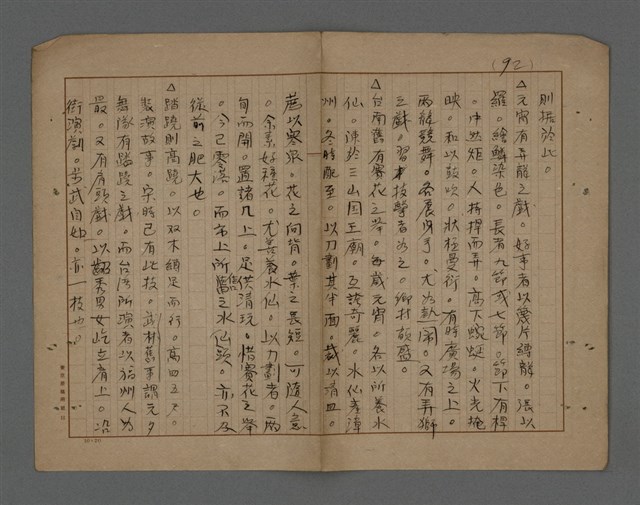 (92)
則據於此。
△元宵有弄龍之戲。好事者以篾片縛龍。張以
羅。繪鱗染色。長者九節或七節。節下有桿
。中然炬。人持桿而弄。高下蜿蜒。火光掩
映。和以鼓吹。狀極曼衍。有時廣場之上。
兩龍競舞。各展身手。尤為熱鬧。又有弄獅
之戲。習拳技擊者為之。鄉村頗盛。
△台南舊有賽花之舉。每歲元宵。各以所養水
仙。陳於三山國王廟。互誇奇麗。水仙產漳
州。冬時配至。以刀劃其半面。栽以清皿。
蓄以寒泉。花之向背。葉之長短。可隨人意
。余素好種花。尤善養水仙。以刀劃者。兩
旬而開。置諸几上。足供清玩。惜賽花之舉
。今已零落。而市上所售之水仙頭。亦不及
從前之肥大也。
△踏蹺則高蹺。以双木續足而行。高四五尺。
裝演故事。宋時已有此技。武林舊事謂元夕
舞隊有踏蹺之戲。而台灣所演者以福州人為
最。又有肩頭戲。以韶秀男女屹立肩上。沿
街演劇。步武自如。亦一技也。